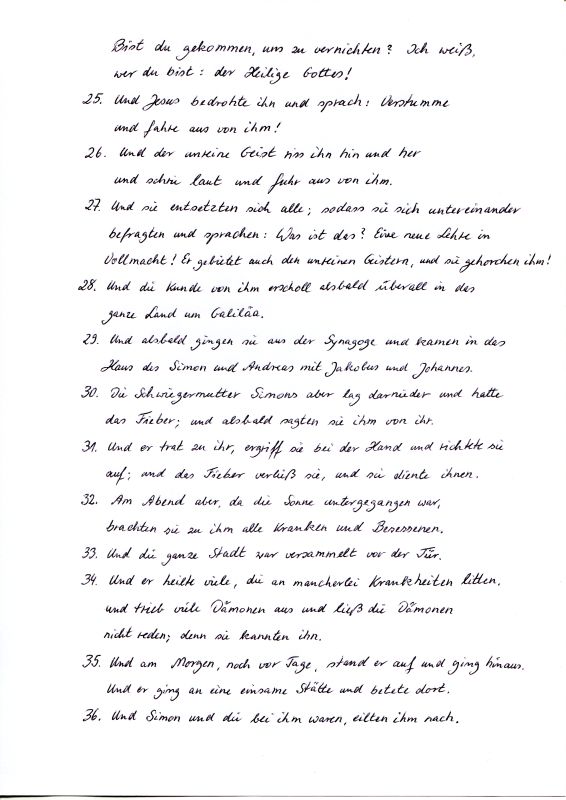 Bist du gekommen, uns zu vernichten? Ich weiß,
wer du bist: der Heilige Gottes!
25. Und Jesus bedrohte ihn und sprach: Verstumme
und fahre aus von ihm!
26. Und der unreine Geist riss ihn hin und her
und schrie laut und fuhr aus von ihm.
27. Und sie entsetzten sich alle; sodass sie sich untereinander
befragten und sprachen: Was ist das? Eine neue Lehre in
Vollmacht! Er gebietet auch den unreinen Geistern, und sie gehorchen ihm!
28. Und die Kunde von ihm erscholl alsbald überall in das
ganze Land um Galiläa.
29. Und alsbald gingen sie aus der Synagoge und kamen in das
Haus des Simon und Andreas mit Jakobus und Johannes.
30. Die Schwiegermutter Simons aber lag darnieder und hatte
das Fieber; und alsbald sagten sie ihm von ihr.
31. Und er trat zu ihr, ergriff sie bei der Hand und richtete sie
auf; und das Fieber verließ sie, und sie diente ihnen.
32. Am Abend aber, da die Sonne untergegangen war,
brachten sie zu ihm alle Kranken und Besessenen.
33. Und die ganze Stadt war versammelt vor der Tür.
34. Und er heilte viele, die an mancherlei Krankheiten litten,
und trieb viele Dämonen aus und ließ die Dämonen
nicht reden; denn sie kannten ihn.
35. Und am Morgen, noch vor Tage, stand er auf und ging hinaus.
Und er ging an eine einsame Stätte und betete dort.
36. Und Simon und die bei ihm waren, eilten ihm nach.